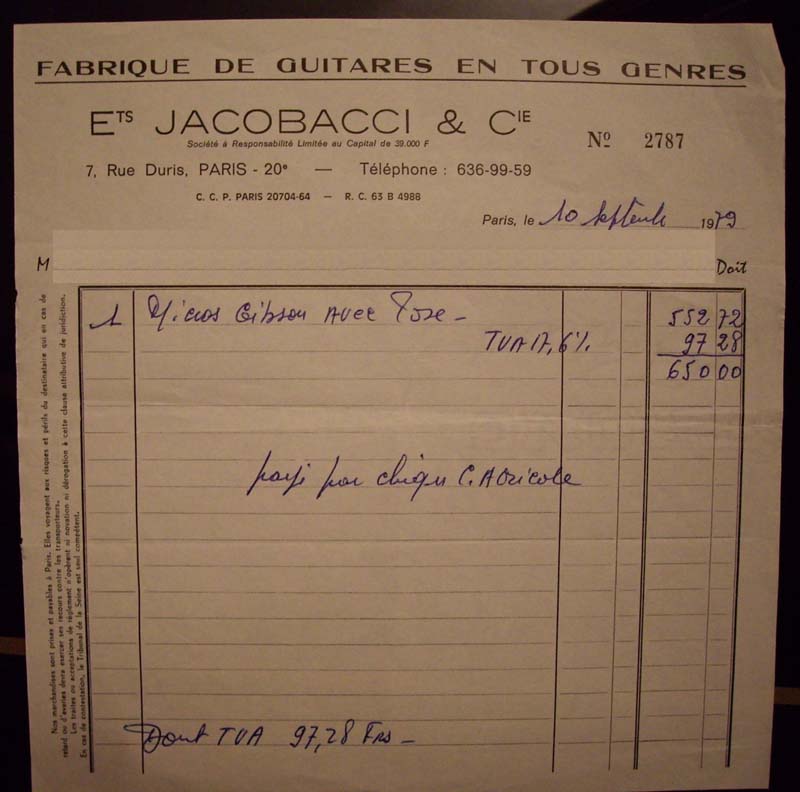 FABRIQUE DE GUITARES EN TOUS GENRES
ETS JACOBACCI & CIE
Société à Responsabilité Limitée au Capital de 39.000 F
No 2787
7, Rue Duris, PARIS - 20e — Téléphone : 636-99-59
C. C. P. PARIS 20704-64 — R. C. 63 B 4988
Paris, le 10 septembre 1979
M
Doit
1 Micros Gibson Avec Pose - 552 72
TVA 17,6% 97 28
650 00
payé par chèque C. Agricole
Dont TVA 97,28 Frs -
Nos marchandises sont prises et payables à Paris. Elles voyagent aux risques et périls du destinataire qui en cas de
retard ou d'avaries devra exercer ses recours contre les transporteurs.
Les traites ou acceptations de règlement n'opèrent ni novation ni dérogation à cette clause attributive de juridiction.
En cas de contestation, le Tribunal de la Seine est seul compétent.